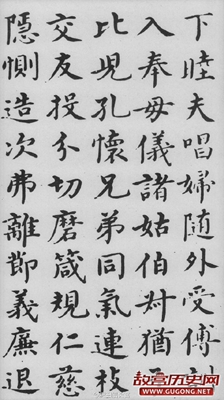 下睦夫唱婦随外受傅
入奉母儀諸姑伯叔猶
比兒孔懷兄弟同氣連枝
交友投分切磨箴規仁慈
隱惻造次弗離節義廉退
故宫历史网
WWW.GUGONG.NET